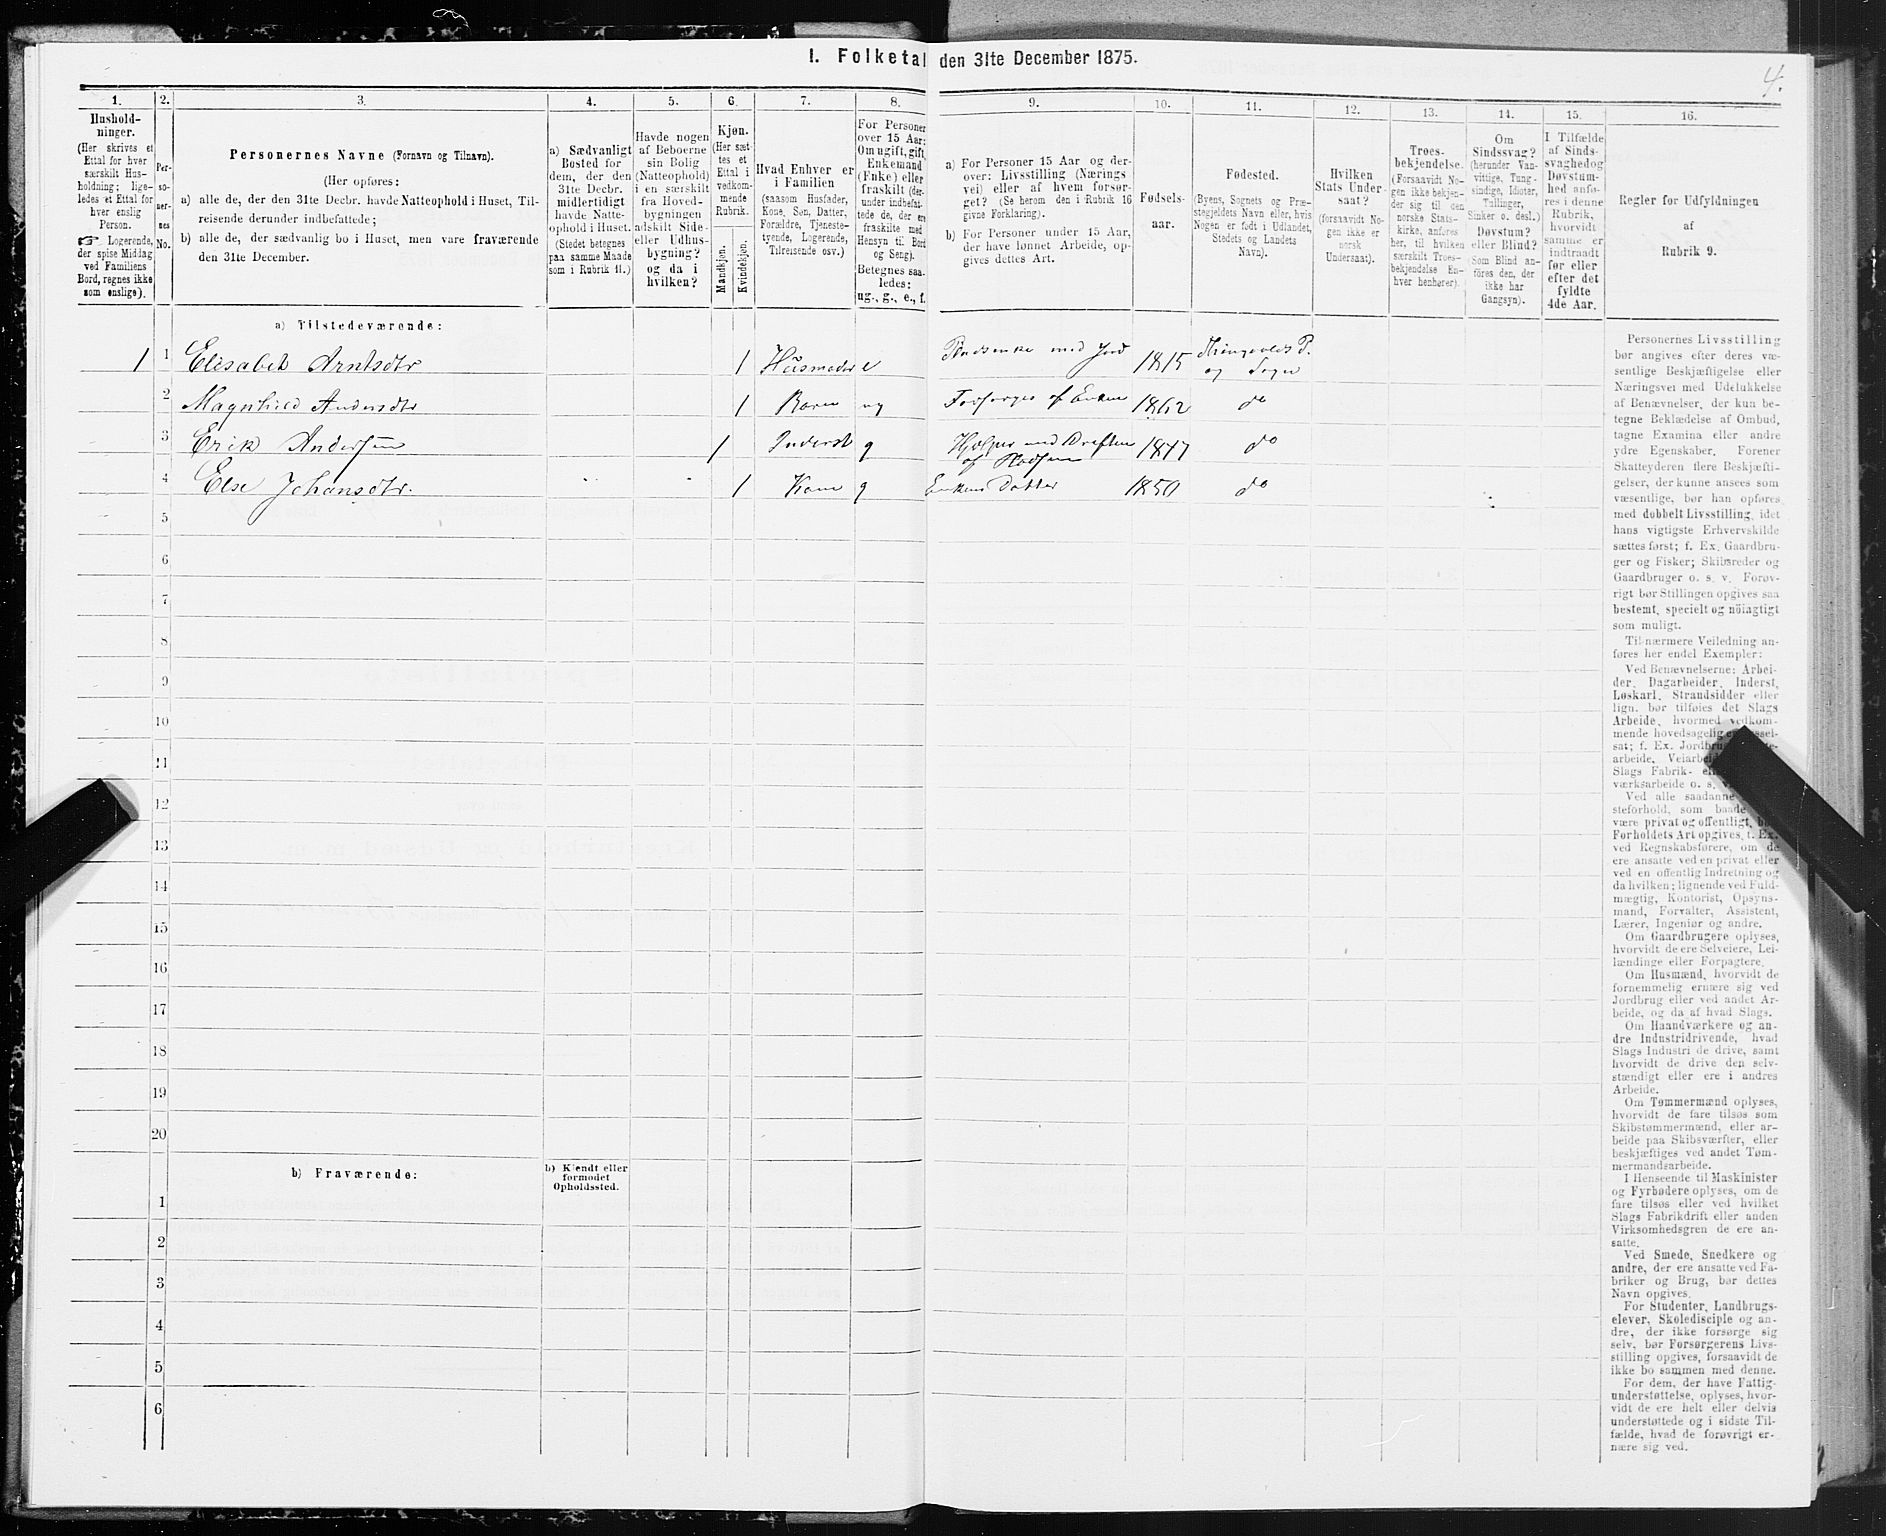 I. Folketal den 31te December 1875.
4.
1.
Hushold-
ninger.
(Her skrives et
Ettal for hver
særskilt Hus-
holdning; lige-
ledes et Ettal for
hver enslig
Person.
☞ Logerende,
der spise Middag
ved Familiens
Bord, regnes ikke
som enslige).
2.
Per-
so-
ner-
nes
No.
3.
Personernes Navne (Fornavn og Tilnavn).
(Her opføres:
a) alle de, der den 31te Decbr. havde Natteophold i Huset, Til-
reisende derunder indbefattede;
b) alle de, der sædvanlig bo i Huset, men vare fraværende
den 31te December.
4.
a) Sædvanligt
Bosted for
dem, der den
31te Decbr.
midlertidigt
havde Natte-
ophold i Huset.
(Stedet betegnes
paa samme Maade
som i Rubrik 11.)
5.
Havde nogen
af Beboerne
sin Bolig
(Natteophold)
i en særskilt
fra Hoved-
bygningen
adskilt Side-
eller Udhus-
bygning?
og da i
hvilken?
6.
Kjøn.
(Her sæt-
tes et
Ettal i
vedkom-
mende
Rubrik.
Mandkjøn.
Kvindekjøn.
7.
Hvad Enhver er
i Familien
(saasom Husfader,
Kone, Søn, Datter,
Forældre, Tjeneste-
tyende, Logerende,
Tilreisende osv.)
8.
For Personer
over 15 Aar:
Om ugift, gift,
Enkemand
(Enke) eller
fraskilt (der-
under indbefat-
tede de, der ere
fraskilte med
Hensyn til Bord
og Seng).
Betegnes saa-
ledes:
ug., g., e., f.
9.
a) For Personer 15 Aar og der-
over: Livsstilling (Nærings-
vei) eller af hvem forsør-
get? (Se herom den i Rubrik 16
givne Forklaring).
b) For Personer under 15 Aar,
der have lønnet Arbeide, op-
gives dettes Art.
10.
Fødsels-
aar.
11.
Fødested.
(Byens, Sognets og Præ-
stegjeldets Navn eller, hvis
Nogen er født i Udlandet,
Stedets og Landets
Navn).
12.
Hvilken
Stats Under-
saat?
(forsaavidt No-
gen ikke er
norsk
Undersaat).
13.
Troes-
bekjendelse.
(Forsaavidt No-
gen ikke bekjen-
der sig til den
norske Stats-
kirke, anføres
her, til hvilken
særskilt Troes-
bekjendelse En-
hver henhører).
14.
Om
Sindssvag?
(herunder Van-
vittige, Tung-
sindige, Idioter,
Tullinger,
Sinker o. desl.)
Døvstum?
eller Blind?
(Som Blind an-
føres den, der
ikke har
Gangsyn).
15.
I Tilfælde
af Sinds-
svaghed og
Døvstum-
hed anfø-
res i denne
Rubrik,
hvorvidt
samme er
indtraadt
før eller
efter det
fyldte
4de Aar.
16.
Regler for Udfyldningen
af
Rubrik 9.
a) Tilstedeværende:
1 1 Elisabet Arntsdtr 1 Husmoder e Pladsenke med Jord 1815 Thingvolds P. og Sogn
2 Magnhild Andersdtr 1 Barn ug Forsørges af Enken 1862 do
3 Erik Andersen 1 Inderst g Hjælper med Driften af Pladsen 1847 do
4 Else Johansdtr. 1 Kone g Enkens Datter 1850 do
5
6
7
8
9
10
11
12
13
14
15
16
17
18
19
20
b) Fraværende:
b) Kjendt eller
formodet
Opholdssted.
1
2
3
4
5
6
Personernes Livsstilling
bør angives efter deres væ-
sentlige Beskjæftigelse eller
Næringsvei med Udelukkelse
af Benævnelser, der kun be-
tegne Beklædelse af Ombud,
tagne Examina eller andre
ydre Egenskaber. Forener
Skatteyderen flere Beskjæfti-
gelser, der kunne ansees som
væsentlige, bør han opføres
med dobbelt Livsstilling, idet
hans vigtigste Erhvervskilde
sættes først; f. Ex. Gaardbru-
ger og Fisker; Skibsreder og
Gaardbruger o. s. v. Forøv-
rigt bør Stillingen opgives saa
bestemt, specielt og nöiagtigt
som muligt.
Til nærmere Veiledning an-
føres her endel Exempler:
Ved Benævnelserne: Arbei-
der, Dagarbeider, Inderst,
Løskarl, Strandsidder eller
lign. bør tilføies det Slags
Arbeide, hvormed vedkom-
mende hovedsagelig
sat; f. Ex.
arbeide,
Slags Fabrik-
værksarbeide o. s.
Ved alle saadanne
steforhold, som baade
være privat og offentligt,
Forholdets Art opgives, f. Ex.
ved Regnskabsførere, om de
ere ansatte ved en privat eller
ved en offentlig Indretning og
da hvilken; lignende ved Fuld-
mægtig, Kontorist, Opsyns-
mand, Forvalter, Assistent,
Lærer, Ingeniør og andre.
Om Gaardbrugere oplyses,
hvorvidt de ere Selveiere, Lei-
lændinge eller Forpagtere.
Om Husmænd, hvorvidt de
fornemmelig ernære sig ved
Jordbrug eller ved andet Ar-
beide, og da af hvad Slags.
Om Haandværkere og an-
dre Industridrivende, hvad
Slags Industri de drive, samt
hvorvidt de drive den selv-
stændigt eller ere i andres
Arbeide.
Om Tømmermænd oplyses,
hvorvidt de fare tilsøs som
Skibstømmermænd, eller ar-
beide paa Skibsværfter, eller
beskjæftiges ved andet Tøm-
mermandsarbeide.
I Henseende til Maskinister
og Fyrbødere oplyses, om de
fare tilsøs eller ved hvilket
Slags Fabrikdrift eller anden
Virksomhedsgren de ere an-
satte.
Ved Smede, Snedkere og
andre, der ere ansatte ved Fa-
briker og Brug, bør dettes
Navn opgives.
For Studenter, Landbrugs-
elever, Skoledisciple og an-
dre, der ikke forsørge sig
selv, bør Forsørgerens Livs-
stilling opgives, forsaavidt de
ikke bo sammen med denne.
For dem, der have Fattig-
understøttelse, oplyses, hvor-
vidt de ere helt eller delvis
understøttede og i sidste Til-
fælde, hvad de forøvrigt er-
nære sig ved.